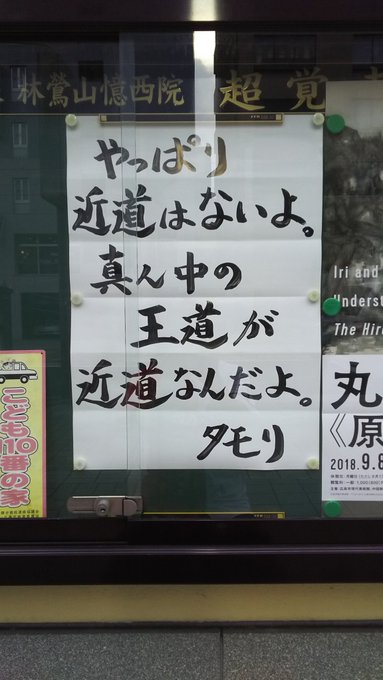 林鶯山憶西院 超覚
やっぱり
近道はないよ。
真ん中の
王道が
近道なんだよ。
タモリ
こども110番の家
Iri and
Underst
The Hiro
丸
《原
2018.9.8